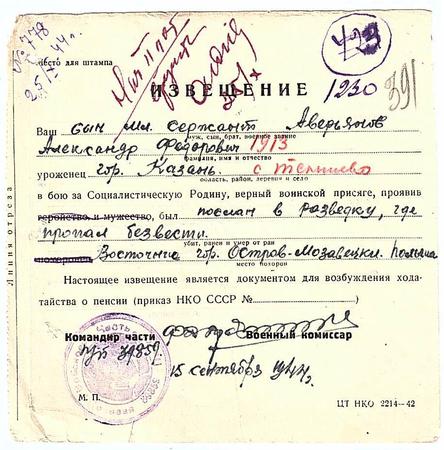 № 778
25/IX 44 г.
место для штампа
429
ИЗВЕЩЕНИЕ
1230
391
Ваш сын мл. сержант Аверьянов
муж, сын, брат, военное звание
Александр Федорович 1913
фамилия, имя и отчество
уроженец гор. Казань
область, район, деревня и село
в бою за Социалистическую Родину, верный воинской присяге, проявив
геройство и мужество, был послан в разведку, где
пропал безвести.
убит, ранен и умер от ран
похоронен Восточнее гор. Остров-Мозавецки. польша
место похорон
Настоящее извещение является документом для возбуждения хода-
тайства о пенсии (приказ НКО СССР №
Командир части
Военный комиссар
п/п 39859
15 сентября 1944 г.
М. П.
ЦТ НКО 2214—42
Линия отреза